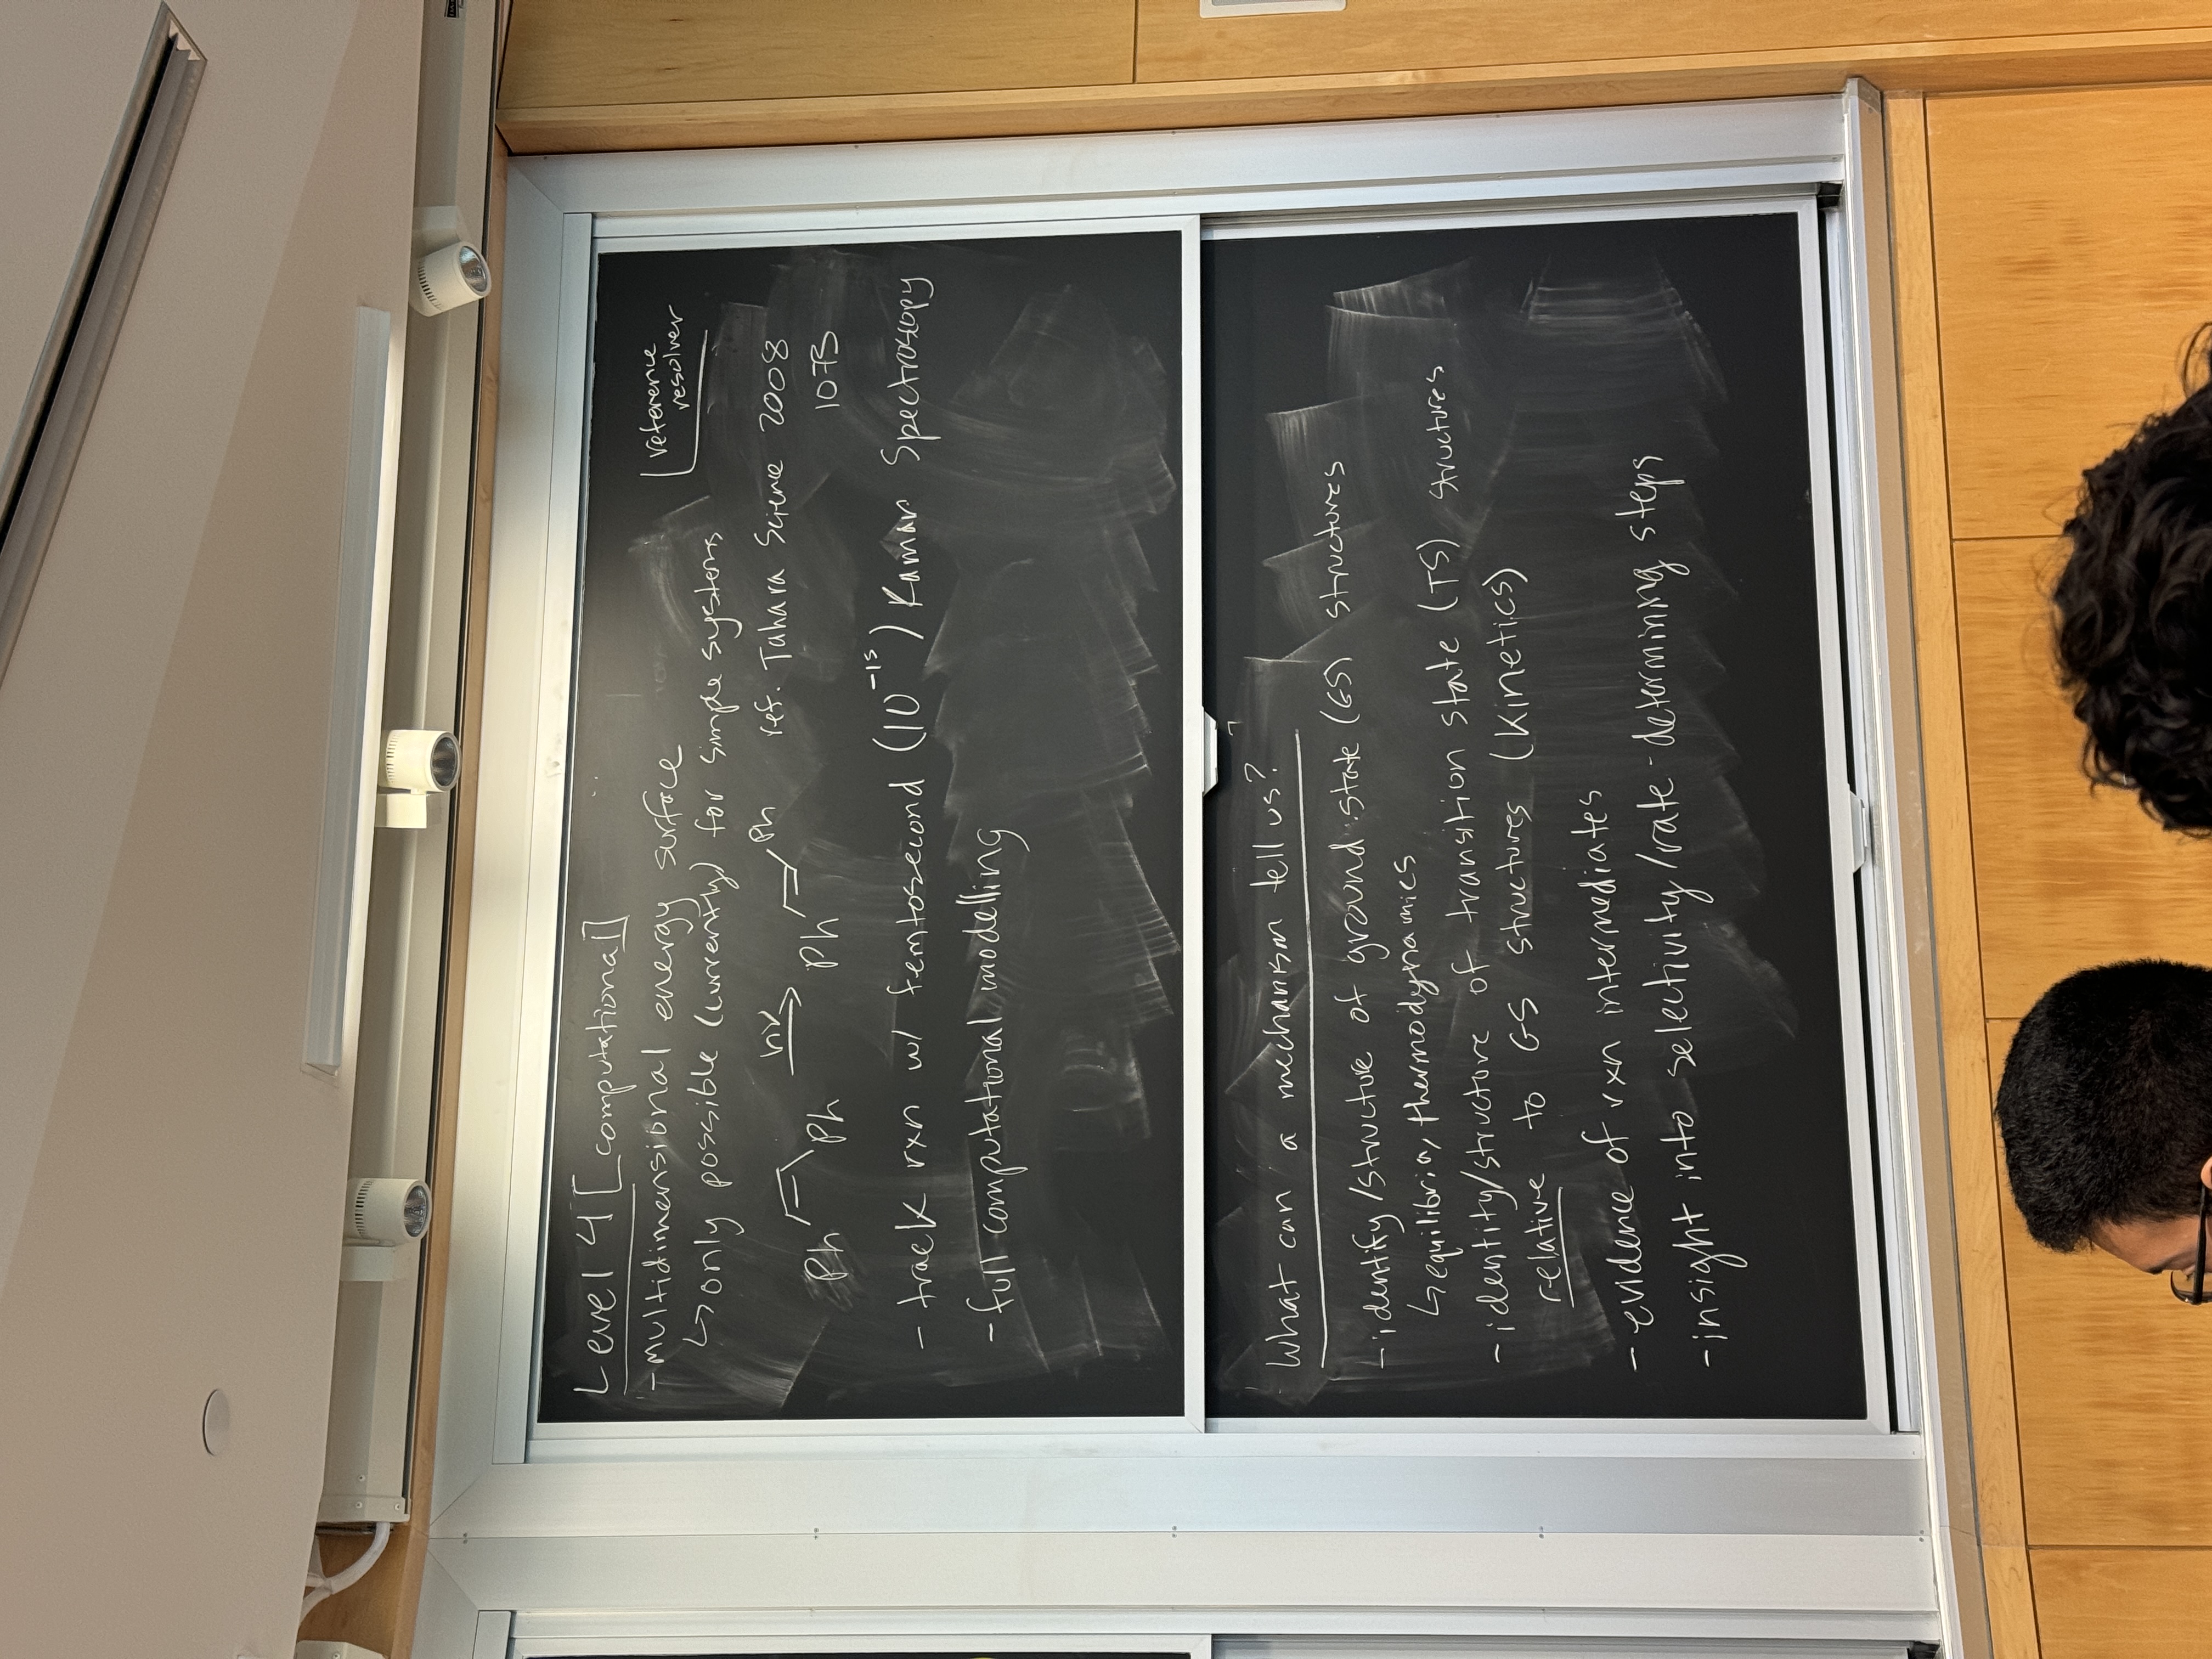 Level 4 [computational]
- multidimensional energy surface
↳ only possible (currently) for simple systems
reference
resolver
Ph Ph hν Ph Ph ref. Tahara Science 2008
1073
- track rxn w/ femtosecond (10⁻¹⁵) Raman Spectroscopy
- full computational modelling
What can a mechanism tell us?
- identify/structure of ground state (GS) structures
↳ equilibria, thermodynamics
- identity/structure of transition state (TS) structures
relative to GS structures (kinetics)
- evidence of rxn intermediates
- insight into selectivity/rate-determining steps